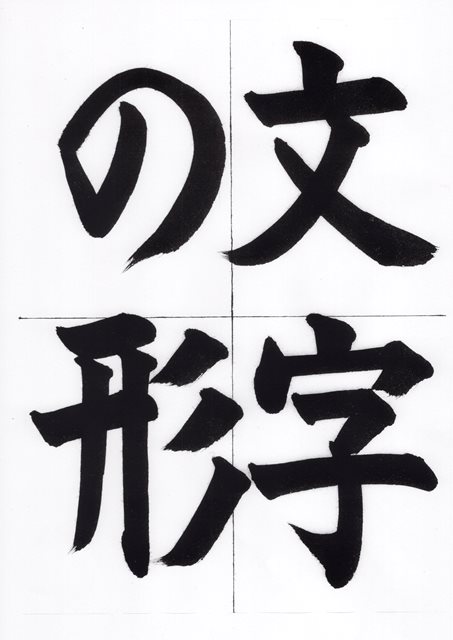 文字
の形